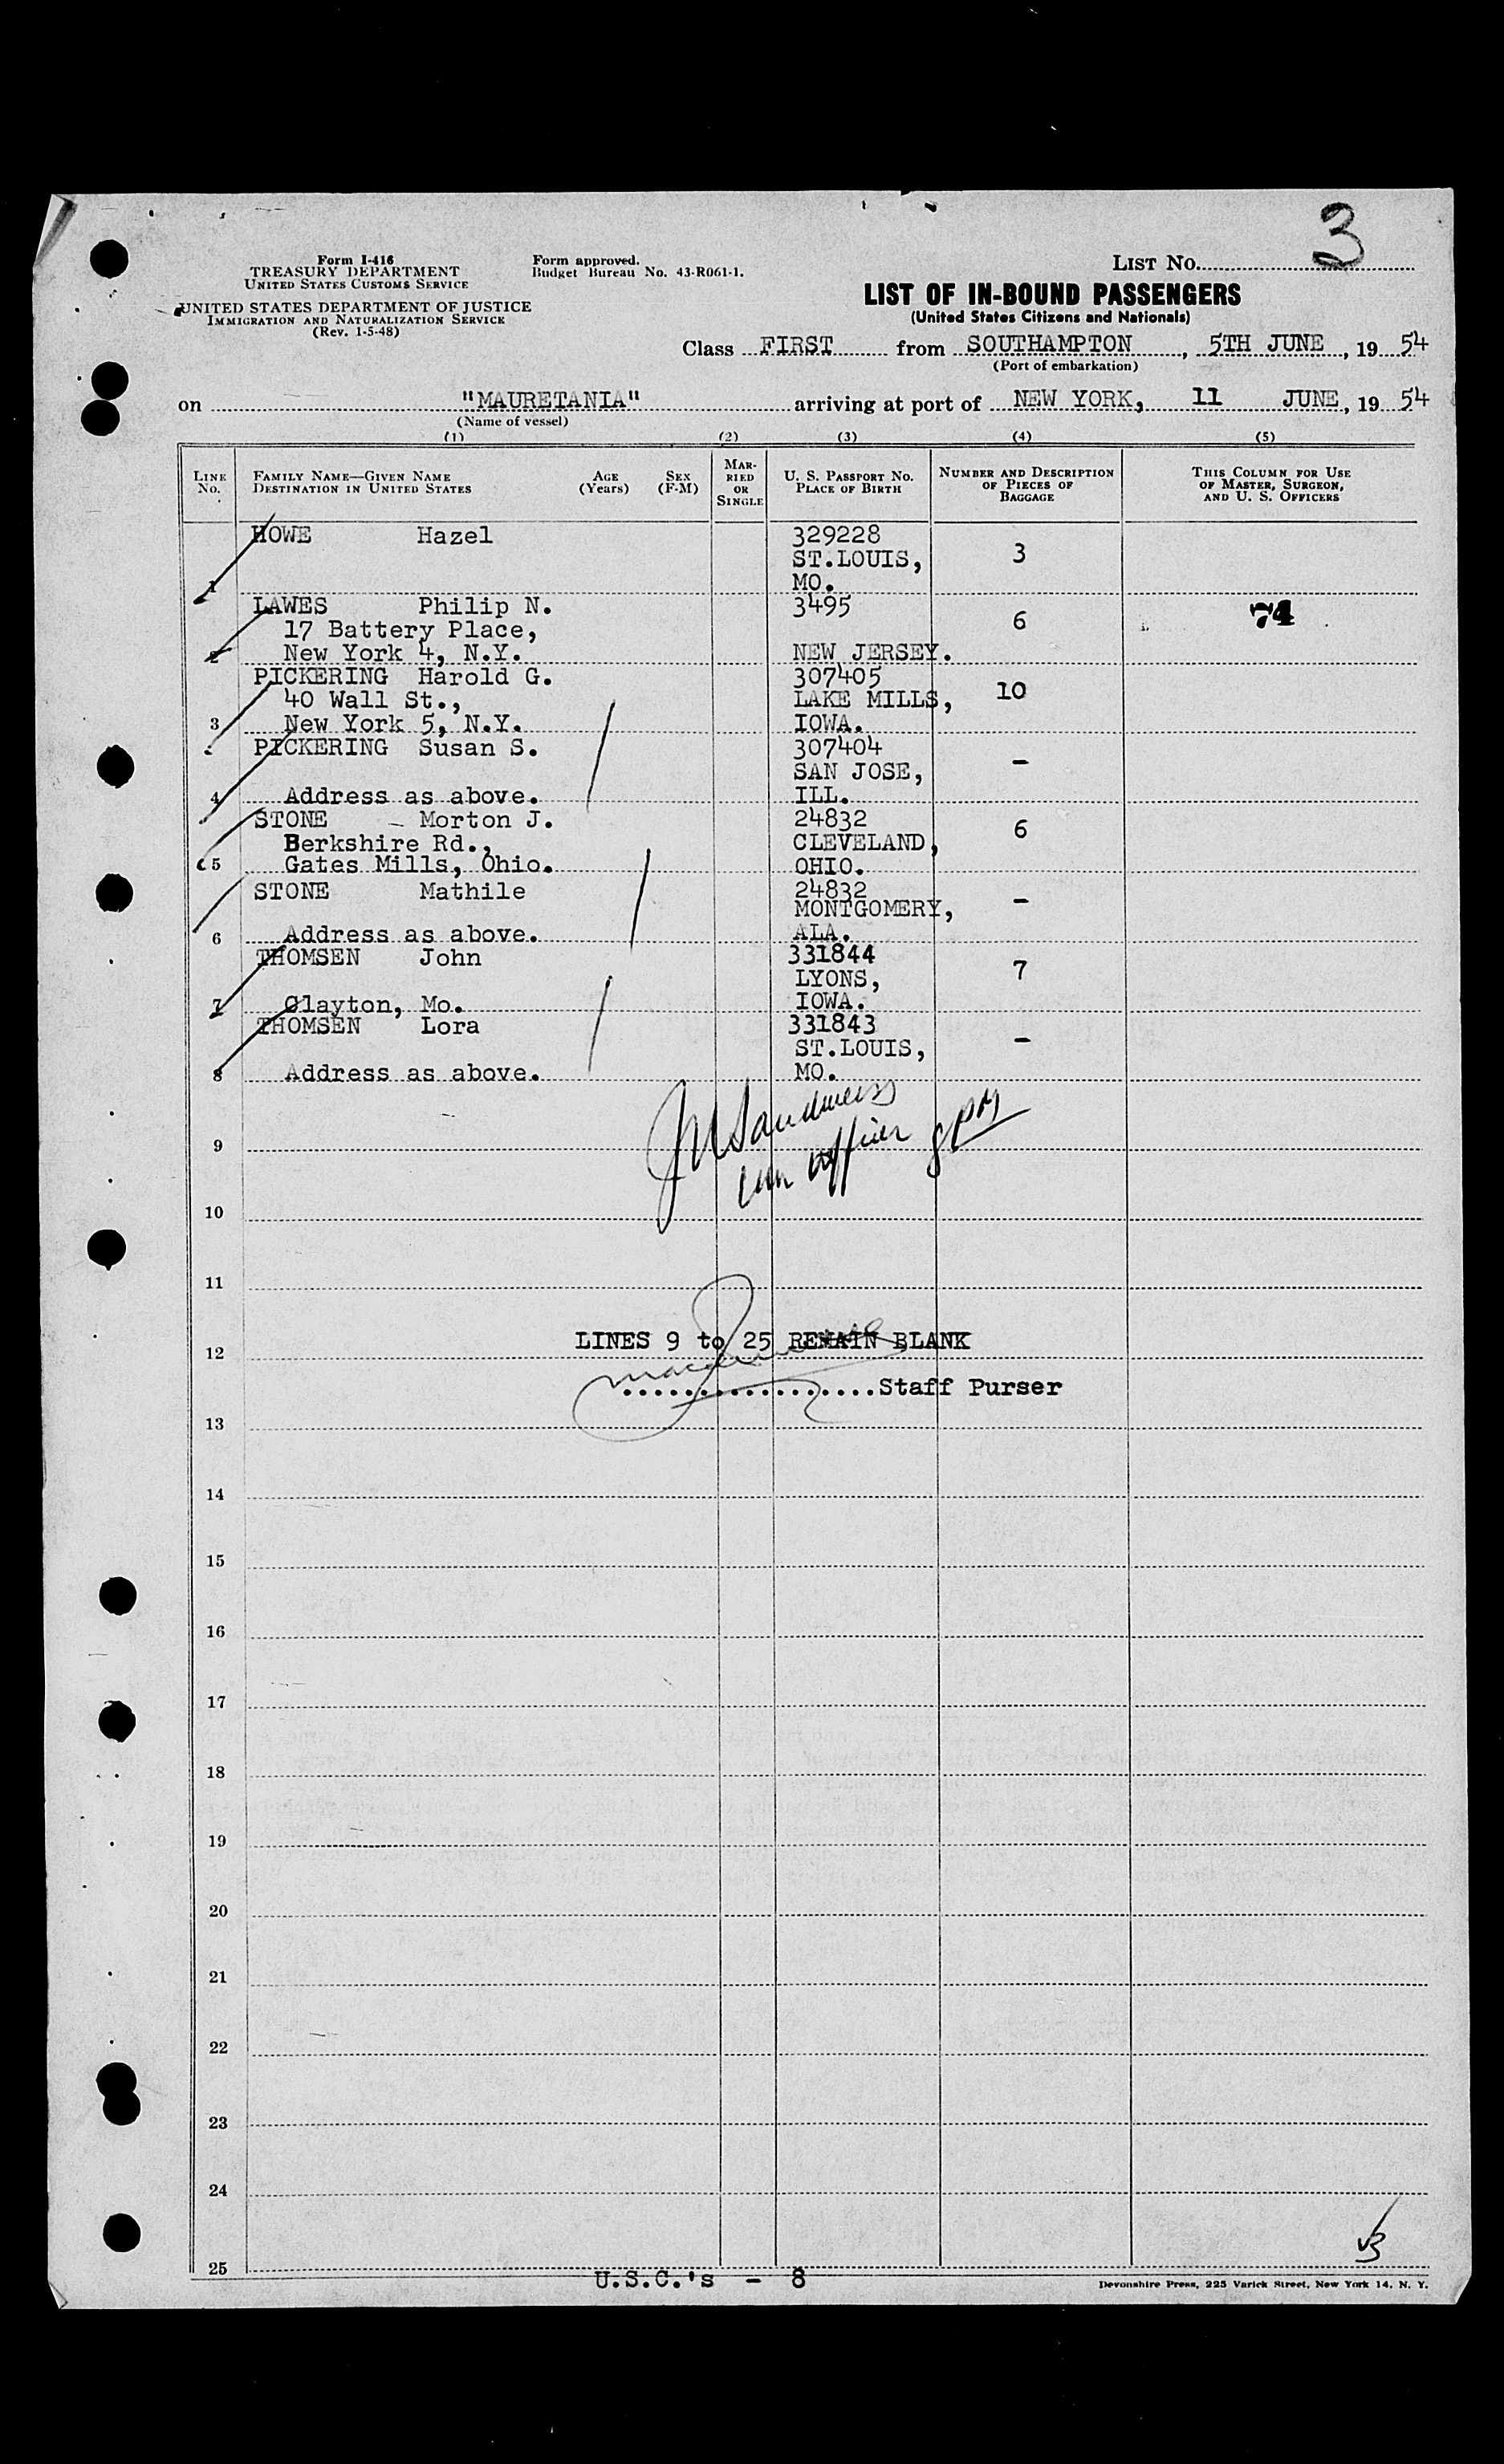 3
Form I-416
TREASURY DEPARTMENT
UNITED STATES CUSTOMS SERVICE
UNITED STATES DEPARTMENT OF JUSTICE
IMMIGRATION AND NATURALIZATION SERVICE
(Rev. 1-5-48)
Form approved.
Budget Bureau No. 43-R061-1.
LIST NO.
LIST OF IN-BOUND PASSENGERS
(United States Citizens and Nationals)
Class FIRST from SOUTHAMPTON, 5TH JUNE, 1954
(Port of embarkation)
on "MAURETANIA" arriving at port of NEW YORK, 11 JUNE, 1954
(Name of vessel)
(1) (2) (3) (4) (5)
LINE NO.
FAMILY NAME—GIVEN NAME
DESTINATION IN UNITED STATES
AGE (Years)
SEX (F-M)
MARRIED OR SINGLE
U. S. PASSPORT NO.
PLACE OF BIRTH
NUMBER AND DESCRIPTION OF PIECES OF BAGGAGE
THIS COLUMN FOR USE OF MASTER, SURGEON, AND U. S. OFFICERS
HOWE Hazel 329228
ST.LOUIS, 3
1 MO.
LAWES Philip N. 3495 74
17 Battery Place, 6
2 New York 4, N.Y. NEW JERSEY.
PICKERING Harold G. 307405
40 Wall St., LAKE MILLS, 10
3 New York 5, N.Y. IOWA.
PICKERING Susan S. 307404
SAN JOSE, -
4 Address as above. ILL.
STONE - Morton J. 24832
Berkshire Rd., CLEVELAND, 6
5 Gates Mills, Ohio. OHIO.
STONE Mathile 24832
MONTGOMERY, -
6 Address as above. ALA.
THOMSEN John 331844
LYONS, 7
7 Clayton, Mo. IOWA.
THOMSEN Lora 331843
ST.LOUIS, -
8 Address as above. MO.
9
10
11
LINES 9 to 25 REMAIN BLANK
12
..................Staff Purser
13
14
15
16
17
18
19
20
21
22
23
24
25
U.S.C.'s - 8
Devonshire Press, 225 Varick Street, New York 14, N. Y.